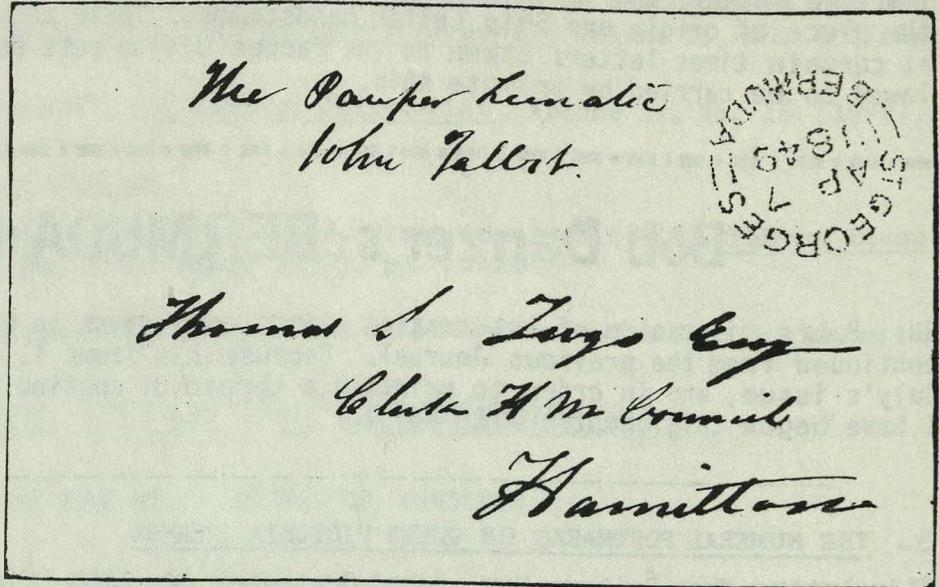 The Pauper Lunatic
John Talbot.
ST GEORGES-BERMUDA
AP 7
1849
Thomas S Tuzo Esq
Clerk H M Council
Hamilton